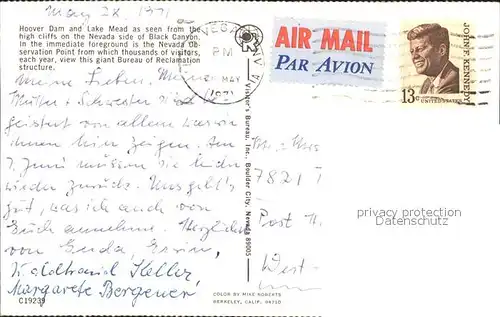 May 28, 1971
Hoover Dam and Lake Mead as seen from the
high cliffs on the Nevada side of Black Canyon.
In the immediate foreground is the Nevada Ob-
servation Point from which thousands of visitors,
each year, view this giant Bureau of Reclamation
structure.
VEGAS
PM
MAY
1971
AIR MAIL
PAR AVION
JOHN F. KENNEDY
13c
UNITED STATES
Meine Lieben. Meine
Mutter + Schwester sind be-
geistert von allem was wir
ihnen hier zeigen. Am
7. Juni müssen sie leider
wieder zurück. Uns geht's
gut, was ich auch von
Euch annehme. Herzlichst
von Gerda, Erwin,
Waldtraud Keller
Margarete Bergener
Visitor's Bureau, Inc., Boulder City, Nevada 89005
7821
Post
West-
privacy protection
Datenschutz
C19239
COLOR BY MIKE ROBERTS
BERKELEY, CALIF. 94710